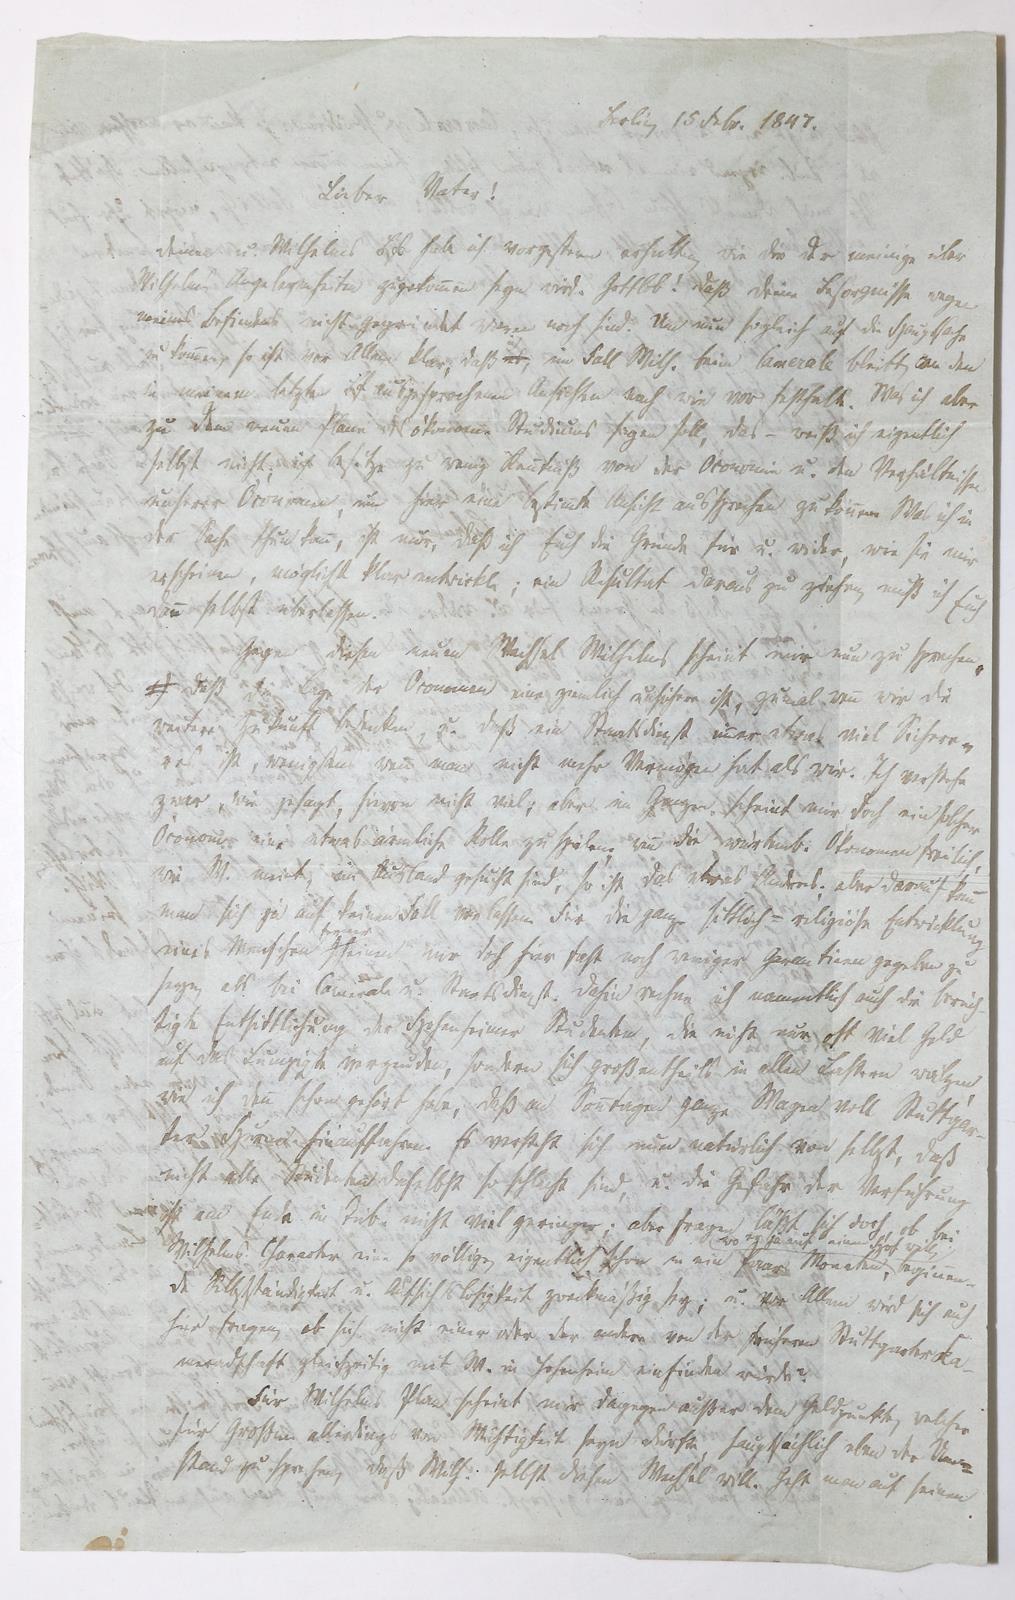 Berlin 15 Febr. 1847.
Lieber Vater!
Deinen u. Wilhelms Bf habe ich vorgestern erhalten, wie Dir der meinige über
Wilhelms Angelegenheiten zugekommen seyn wird. Gottlob! daß Deine Besorgnisse wegen
meines Befindens nicht gegründet waren noch sind. Um nun sogleich auf die Hauptsache
zu kommen, so ist vor Allem klar, daß ich, im Fall Wilh. beim Camerale bleibt, an den
in meinem letzten Bf ausgesprochenen Ansichten nach wie vor festhalte. Was ich aber
zu dem neuen Plane des ökonom. Studiums sagen soll, das – weiß ich eigentlich
selbst nicht; ich besitze zu wenig Kenntniß von der Öconomie u. den Verhältnissen
unserer Öconomen, um hier eine bestimte Ansicht aussprechen zu können. Was ich in
der Sache thun kann, ist nur, daß ich Euch die Gründe für u. wider, wie sie mir
erscheinen, möglichst klar entwickle; ein Resultat daraus zu ziehen muß ich Euch
dann selbst überlassen.
Gegen diesen neuen Wechsel Wilhelms scheint mir nun zu sprechen,
daß die Lage der Öconomen eine ziemlich unsichere ist, zumal wenn wir die
weitere Zukunft bedenken, u. daß ein Staatsdienst immer etwas viel Sichere-
res ist, wenigstens wenn man nicht mehr Vermögen hat als wir. Ich verstehe
zwar, wie gesagt, hievon nicht viel; aber im Ganzen scheint mir doch ein solcher
Öconom eine etwas ärmliche Rolle zu spielen; wenn die würtemb. Ökonomen freilich,
wie W. meint, im Ausland gesucht sind, so ist das etwas Andres; aber darauf kann
man sich ja auf keinen Fall verlassen. Für die ganze sittlich=religiöse Entwicklung
eines Menschen scheinen ferner mir doch hier fast noch weniger Garantieen gegeben zu
seyn, als bei Camerale u. Staatsdienst. Dahin rechne ich namentlich auch die berüch-
tigte Entsittlichung der Hohenheimer Studenten, die nicht nur oft viel Geld
auf das Lumpigste vergeuden, sondern sich großentheils in allen Lastern wälzen,
wie ich denn schon gehört habe, daß an Sonntagen ganze Wagen voll Stuttgar-
ter Huren hinausfahren. Es versteht sich nun natürlich von selbst, daß
nicht alle Studenten daselbst so schlecht sind, u. die Gefahr der Verführung
ist am Ende in Tüb. nicht viel geringer; aber fragen läßt sich doch, ob bei
Wilhelms Character eine so völlige, eigentlich schon in ein paar Monaten, beginnen-
de Selbstständigkeit u. Aufsichtslosigkeit zweckmäßig sey; u. vor Allem wird sich auch
hier fragen, ob sich nicht einer oder der andere von der früheren Stuttgarter Ka-
meradschaft gleichzeitig mit W. in Hohenheim einfinden würde?
Für Wilhelms Plan scheint mir dagegen außer dem Geldpunkte, welcher
für Großm. allerdings von Wichtigkeit seyn dürfte, hauptsächlich eben der Um=
stand zu sprechen, daß Wilh. selbst diesen Wechsel will. Geht man auf seinen